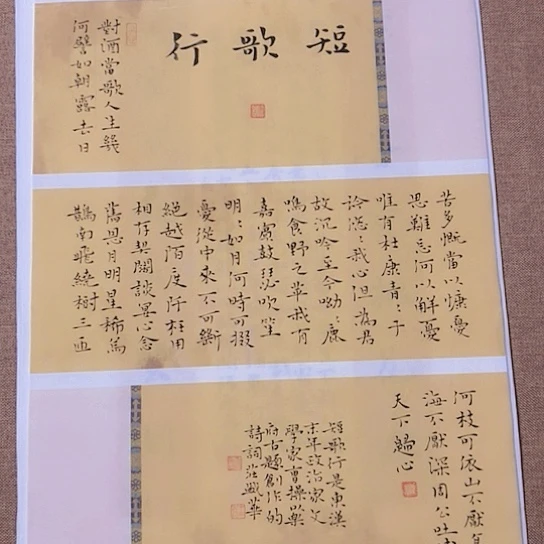 短歌行
對酒當歌人生幾
何譬如朝露去日
苦多慨當以慷憂
思難忘何以解憂
唯有杜康青〻子
衿悠〻我心但為君
故沉吟至今呦〻鹿
鳴食野之苹我有
嘉賓鼓瑟吹笙
明〻如月何時可掇
憂從中來不可斷
絕越陌度阡枉用
相存契闊談宴心念
舊恩月明星稀烏
鵲南飛繞樹三匝
何枝可依山不厭
海不厭深周公吐
天下歸心
短歌行是東漢
末年政治家文
學家曹操樂
府古題創作的
詩詞莊華